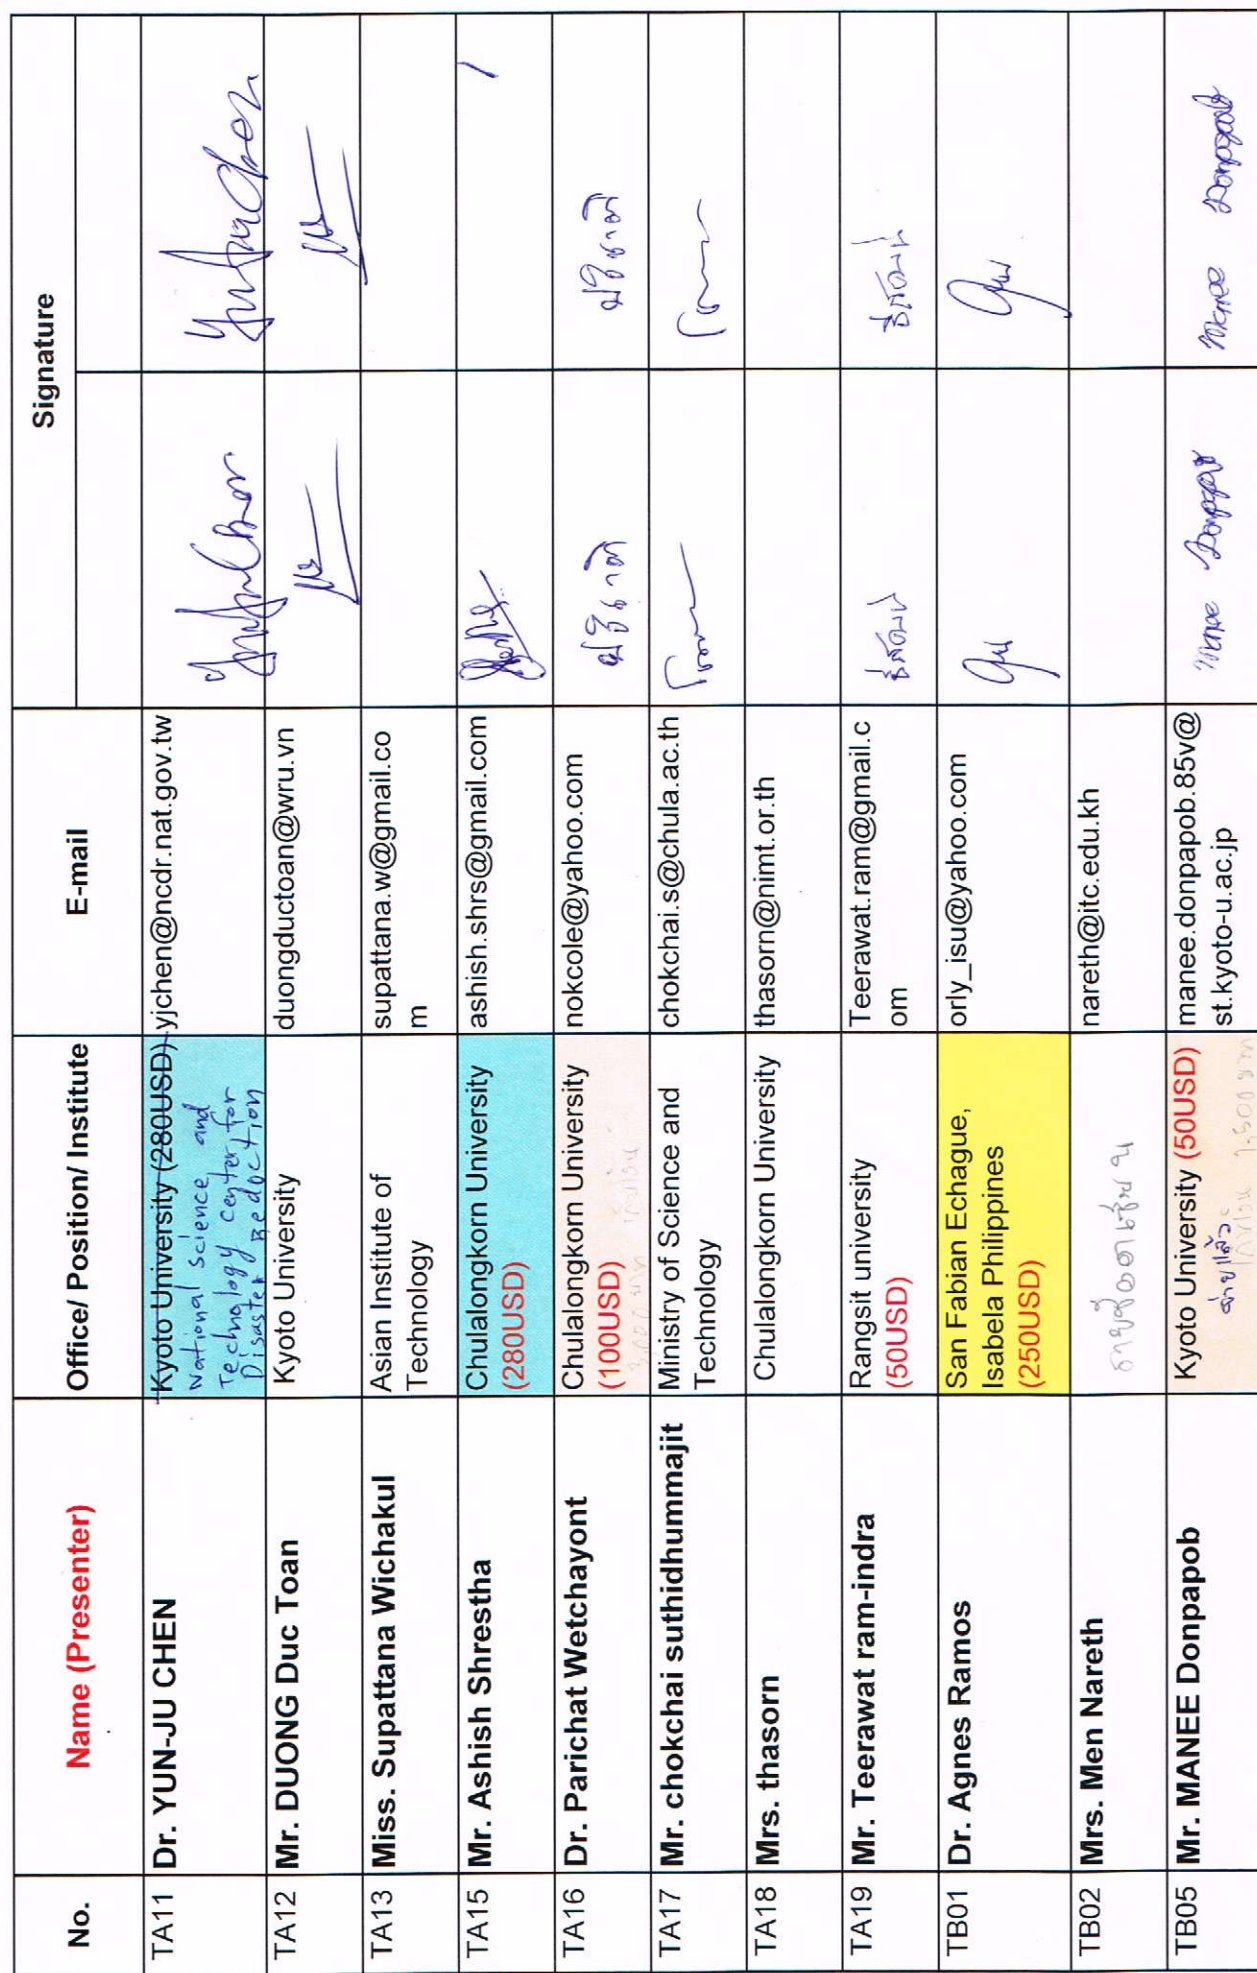 No.
Name (Presenter)
Office/ Position/ Institute
E-mail
Signature
TA11
Dr. YUN-JU CHEN
Kyoto University (280USD)
National science and
Technology center for
Disaster Reduction
yjchen@ncdr.nat.gov.tw
TA12
Mr. DUONG Duc Toan
Kyoto University
duongductoan@wru.vn
TA13
Miss. Supattana Wichakul
Asian Institute of
Technology
supattana.w@gmail.co
m
TA15
Mr. Ashish Shrestha
Chulalongkorn University
(280USD)
ashish.shrs@gmail.com
TA16
Dr. Parichat Wetchayont
Chulalongkorn University
(100USD)
nokcole@yahoo.com
ปริชาติ
ปริชาติ
TA17
Mr. chokchai suthidhummajit
Ministry of Science and
Technology
chokchai.s@chula.ac.th
TA18
Mrs. thasorn
Chulalongkorn University
thasorn@nimt.or.th
TA19
Mr. Teerawat ram-indra
Rangsit university
(50USD)
Teerawat.ram@gmail.c
om
TB01
Dr. Agnes Ramos
San Fabian Echague,
Isabela Philippines
(250USD)
orly_isu@yahoo.com
TB02
Mrs. Men Nareth
nareth@itc.edu.kh
TB05
Mr. MANEE Donpapob
Kyoto University (50USD)
จ่ายแล้ว
manee.donpapob.85v@
st.kyoto-u.ac.jp
Manee Donpapob
Manee Donpapob